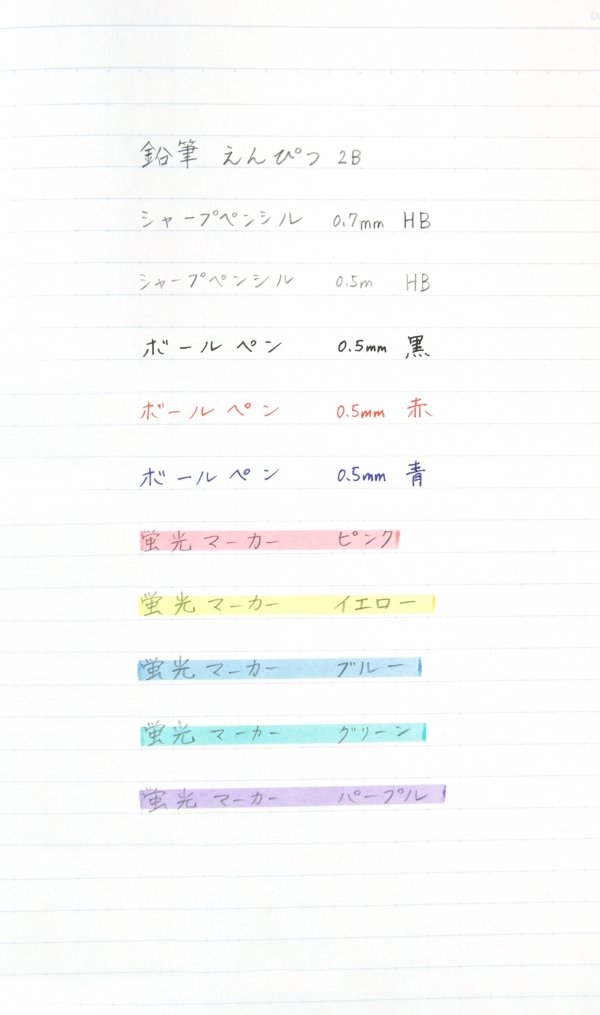 鉛筆 えんぴつ 2B
シャープペンシル 0.7mm HB
シャープペンシル 0.5m HB
ボールペン 0.5mm 黒
ボールペン 0.5mm 赤
ボールペン 0.5mm 青
蛍光マーカー ピンク
蛍光マーカー イエロー
蛍光マーカー ブルー
蛍光マーカー グリーン
蛍光マーカー パープル